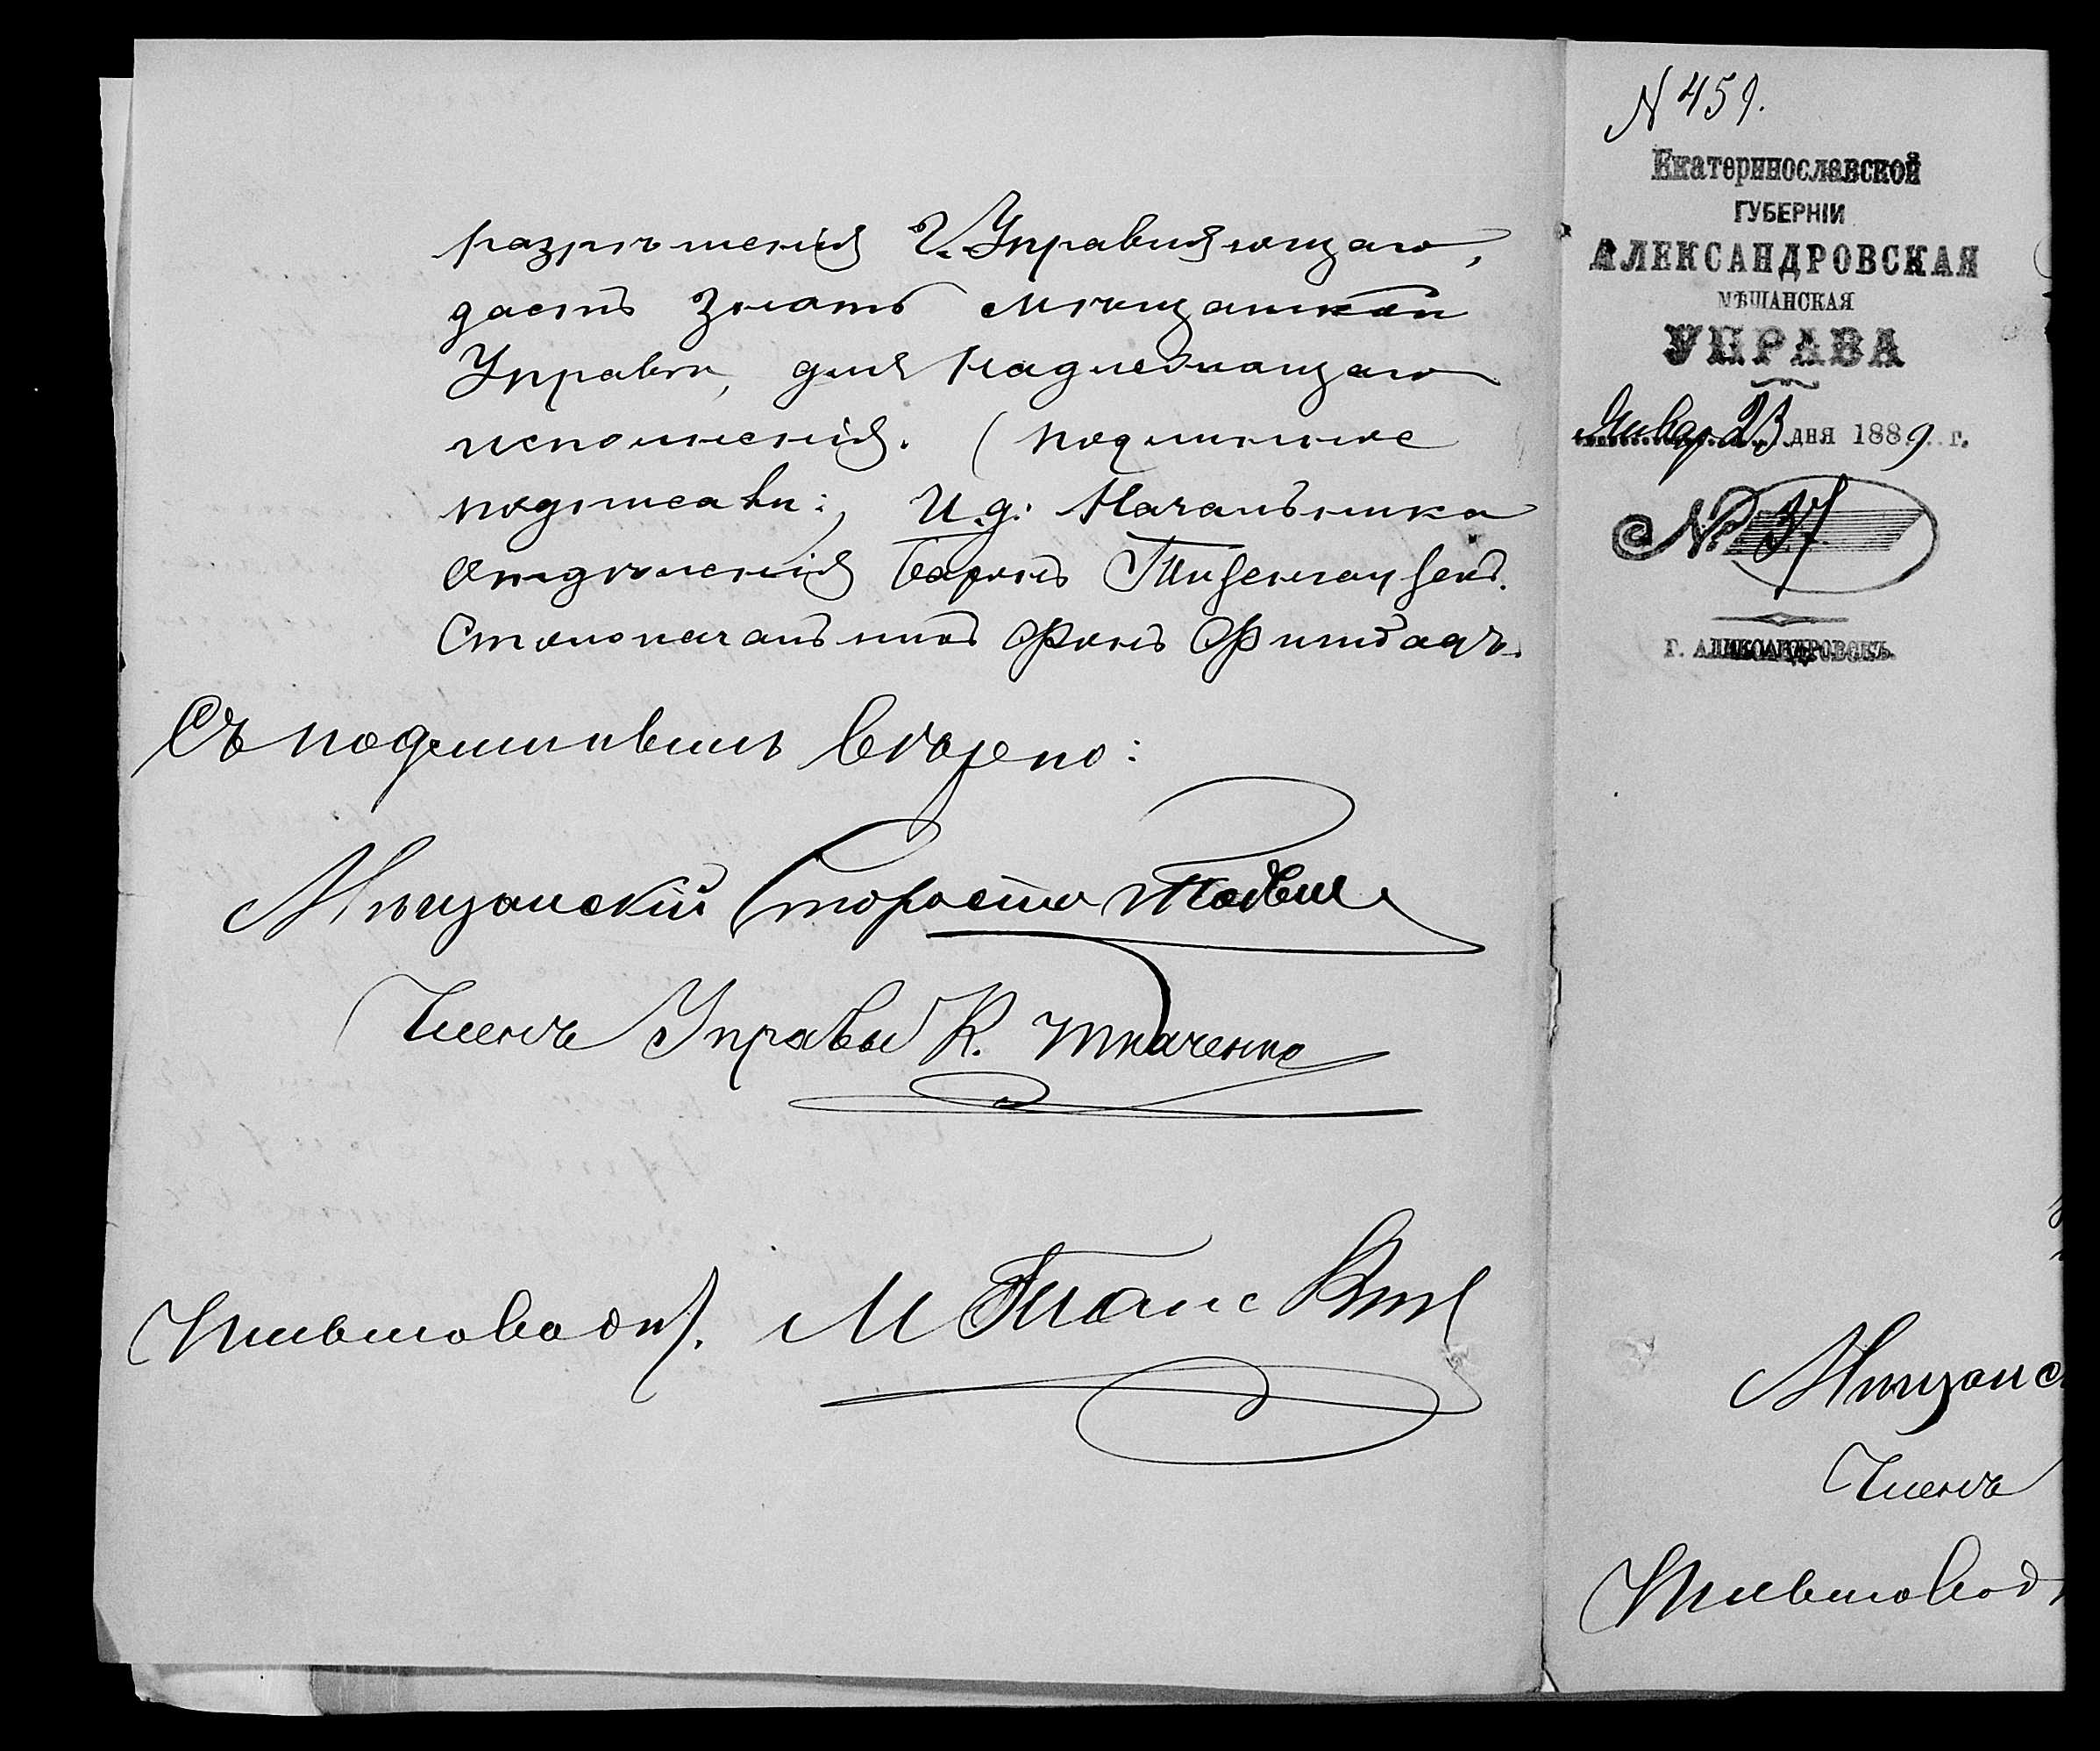 разрѣшенія Г. Управляющаго,
даетъ знать мѣщанской
Управѣ, для надлежащаго
исполненія. (подлинное
подписали:) И.д. Начальника
Отдѣленія Баронъ Тизенгаузенъ.
Столоначальникъ Фонъ
Съ подлиннымъ вѣрно:
Мѣщанскій Староста
Членъ Управы К. Ткаченко
Письмоводит. М
N 459.
Екатеринославской
ГУБЕРНІИ
АЛЕКСАНДРОВСКАЯ
МѢЩАНСКАЯ
УПРАВА
Январ. 23 дня 1889 г.
№ 37
Г. АЛЕКСАНДРОВСКЪ.
Мѣщанс
Членъ
Письмовод